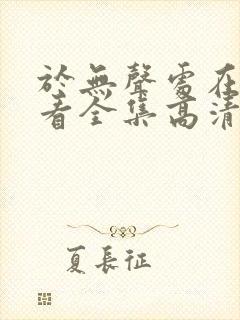 於無聲處在
看全集高清
夏長征